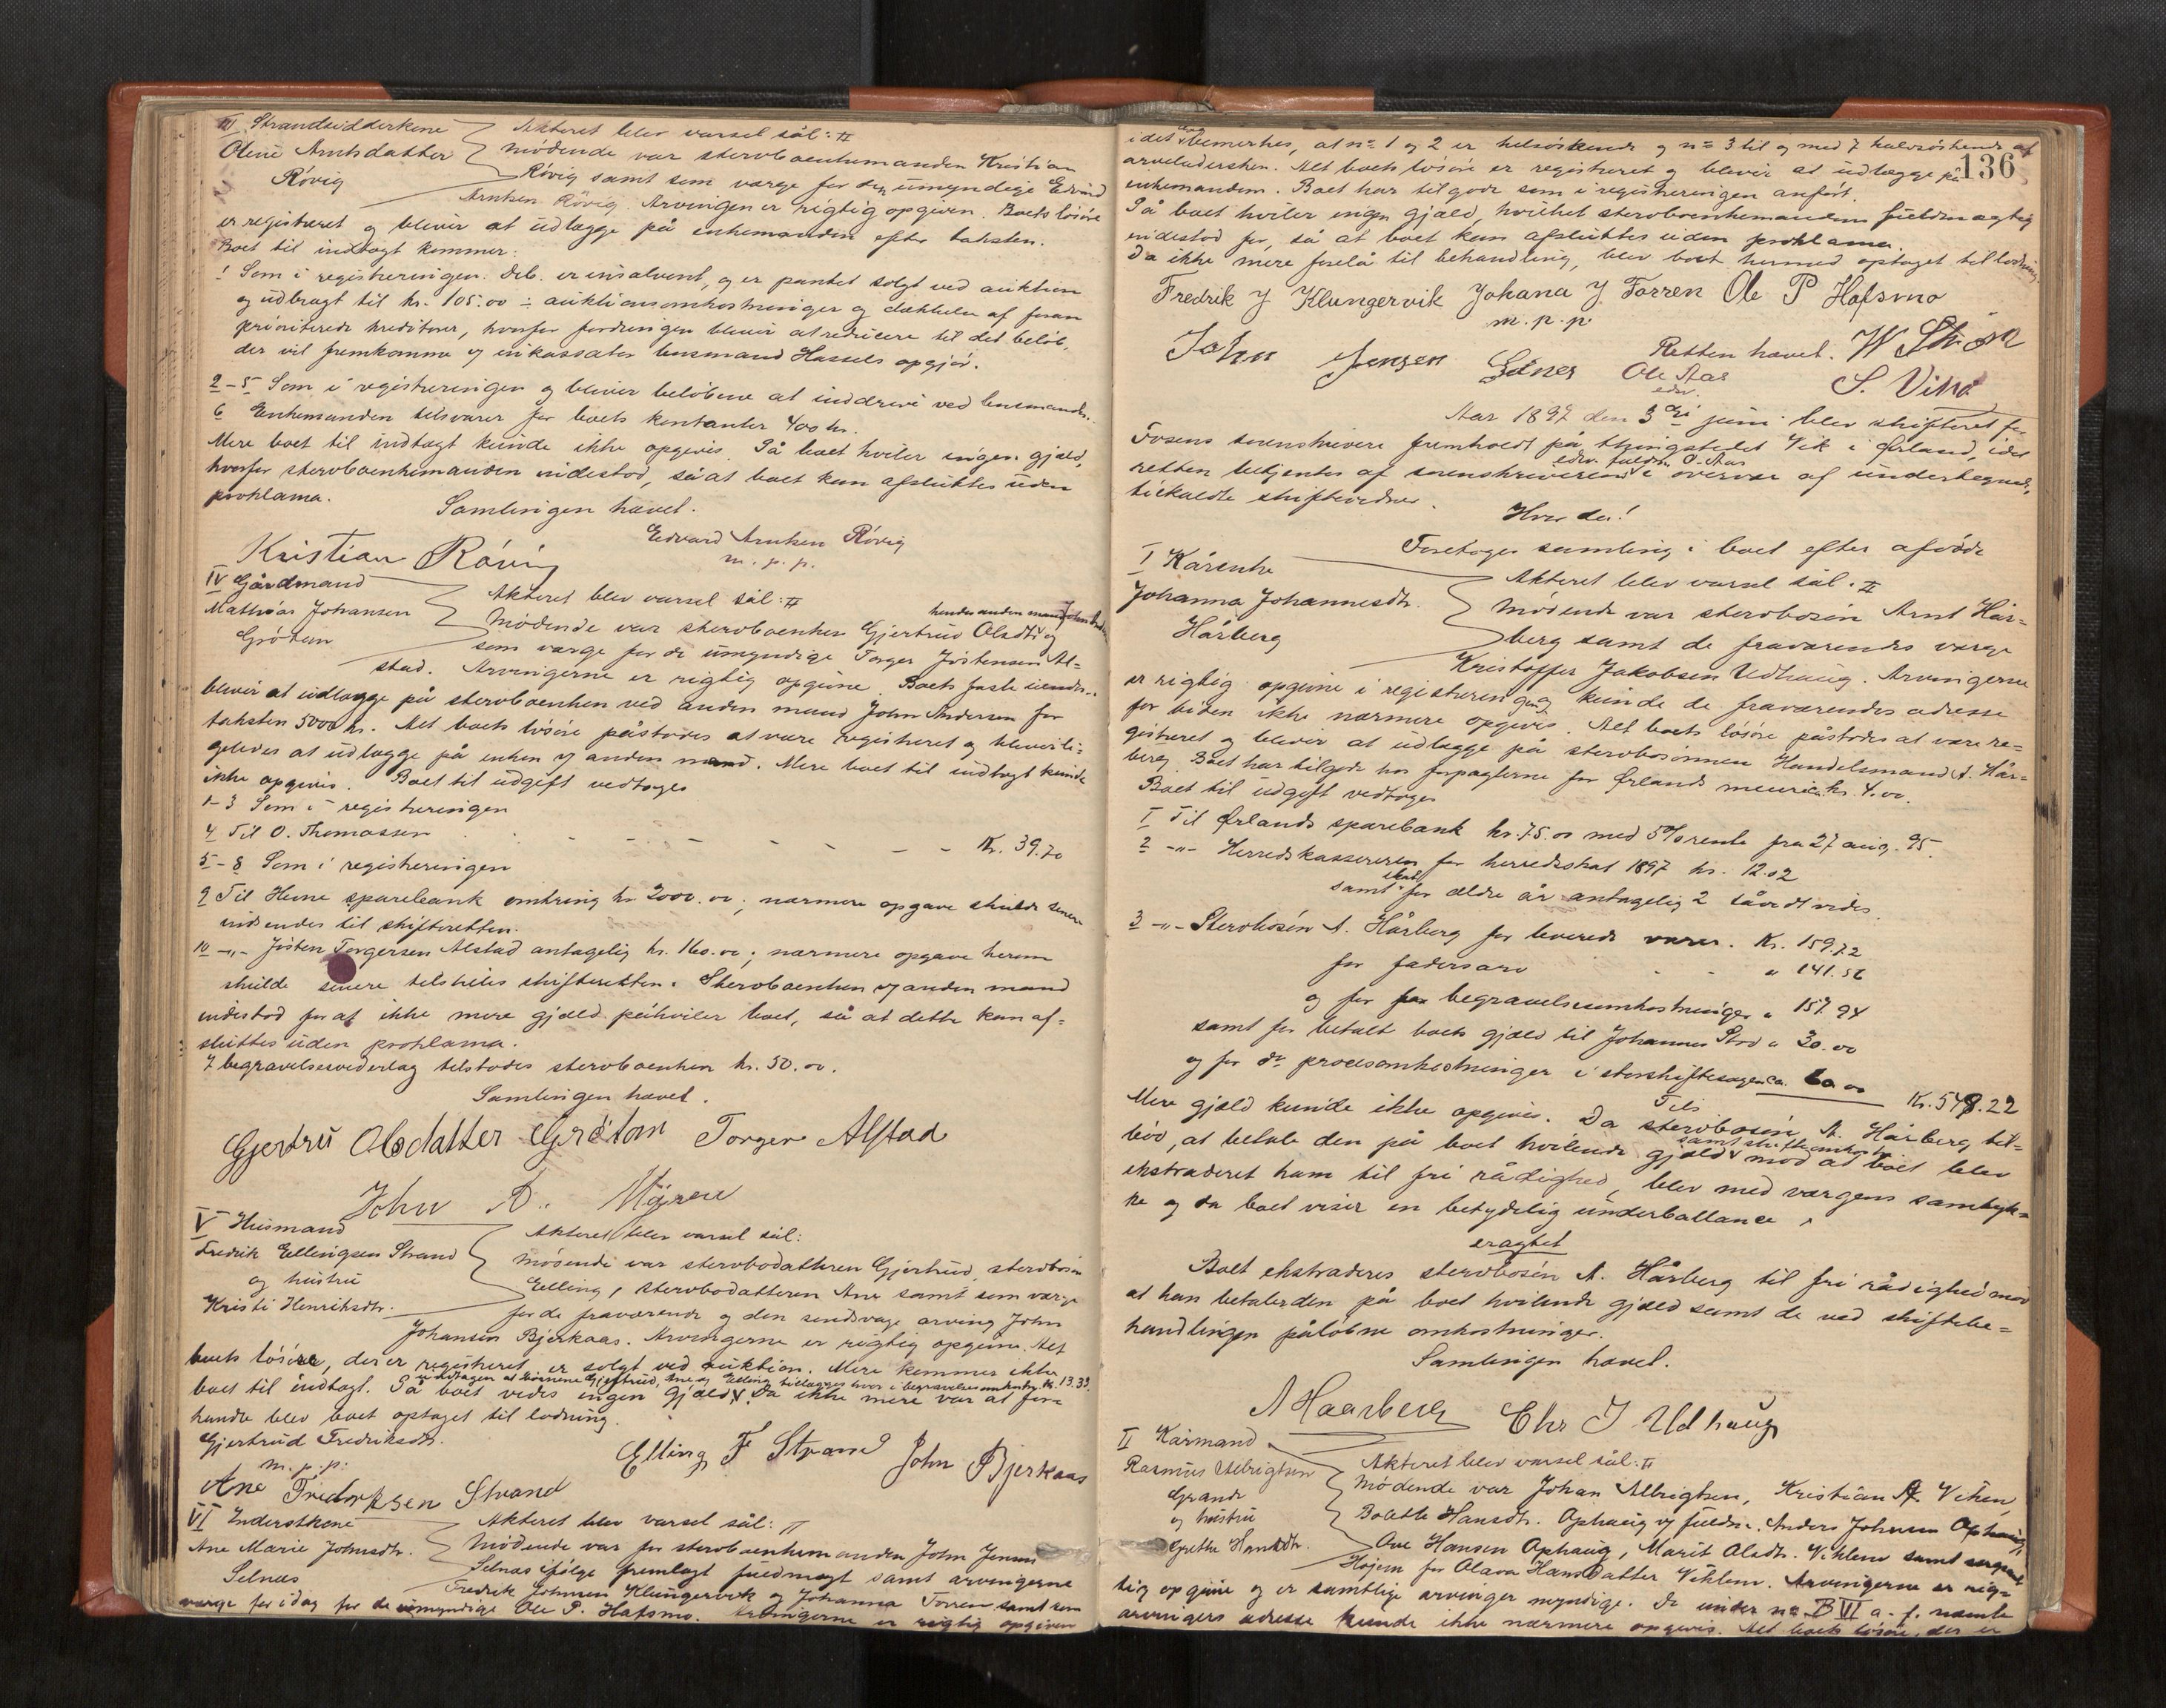 III Strandsidderkone
Oline Arntsdatter
Rövig
Akteret blev varsel sål: #
Mödende var stervboenkemanden Kristian
Rövig samt som værge for den umyndige Edvard
Arntsen Rövig. Arvingen er rigtig opgiven. Boets lösöre
er registreret og blevir at udlægge på enkemanden efter taksten.
Boet til indtægt kommer:
1 Som i registreringen. Deb. er insolvent, og er pantet solgt ved auktion
og udbragt til kr. 105.00 ÷ auktionsomkostninger og dækkelse af foran
prioriterede kreditorer, hvorfor fordringen blevir at reducere til det belöb,
der vil fremkomme ifölge inkassator lensmand Hassels opgjör.
2-5 Som i registreringen og blevir belöbene at inddrive ved lensmanden.
6 Enkemanden tilsvarer for boets kontanter 400 kr.
Mere boet til indtægt kunde ikke opgives. På boet hviler ingen gjæld,
hvorfor stervboenkemanden indestod, så at boet kan afsluttes uden
proklama.
Samlingen hævet.
Kristian Rövig
Edvard Arntsen Rövig
m. p. p.
IV Gårdmand
Mathias Johansen
Grötan
Akteret blev varsel sål: #
hendes anden mand John
Mödende var stervboenken Gjertrud Olsdtr og
som værge for de umyndige Torger Jöstensen Al=
stad. Arvingerne er rigtig opgivne. Boets faste eiendom
blevir at udlægge på stervboenken ved anden mand John Andersen for
taksten 5000 kr. Alt boets lösöre påstodes at være registreret og blevir li=
geledes at udlægge på enken og anden mand. Mere boet til indtægt kunde
ikke opgives. Boet til udgift vedtoges
1-3 Som i registreringen
4 Til O. Thomassen - - - - - - Kr. 39.70
5-8 Som i registreringen
9 Til Hevne sparebank omkring kr 2000.00; nærmere opgave skulde senere
indsendes til skifteretten.
10 -"- Jösten Torgersen Alstad antagelig kr. 160.00; nærmere opgave herom
skulde senere tilstilles skifteretten. Stervboenken og anden mand
indestod for at ikke mere gjæld påhviler boet, så at dette kan af=
sluttes uden proklama.
I begravelsesvederlag tilstodes stervboenken kr. 50.00.
Samlingen hævet.
Gjertru Olsdatter Grötan Torger Alstad
John A. Möyren
V Husmand
Fredrik Ellingsen Strand
og hustru
Kristi Henriksdtr.
Akteret blev varsel sål:
Mödende var stervbodatteren Gjertrud, stervbosön
Elling, stervbodatteren Ane samt som værge
for de fraværende og den sindssvage arving John
Johansen Bjerkaas. Arvingerne er rigtig opgivne. Alt
boets lösöre, der er registreret, er solgt ved auktion. Mere kommer ikke
undtagen at börnene Gjertrud, Ane og Elling tillægges hver i begravelsesomkostn. kr. 13.33.
boet til indtægt. På boet vides ingen gjæld. Da ikke mere var at for=
handle blev boet optaget til lodning.
Gjertrud Fredriksdtr.
m. p. p.
Elling F Strand John Bjerkaas
Ane Fredriksen Strand
VI Inderstkone
Ane Marie Johnsdtr.
Selnæs
Akteret blev varsel sål: #
Mödende var for stervboenkemanden John Jensen
Selnæs ifölge fremlagt fuldmagt samt arvingerne
Fredrik Johnsen Klungervik og Johanna Forren samt som
værge for idag for de umyndige Ole P. Hafsmo. Arvingerne er rigtig opgiven
136
idet bemerkes, at no 1 og 2 er helsöskende og no 3 til og med 7 halvsöskende af
arveladersken. Alt boets lösöre er registreret og blevir at udlægge på
enkemanden. Boet har tilgode som i registreringen anfört.
På boet hviler ingen gjæld, hvilket stervboenkemandens fuldmægtig
indestod for, så at boet kan afsluttes uden proklama.
Da ikke mere forelå til behandling, blev boet hermed optaget til lodning.
Fredrik J Klungervik Johana J Forren Ole P Hafsmo
m. p. p.
John Jensen Selnes Ole Aas
edv.
Retten hævet.
Aar 1897 den 3die juni blev skifteret for
Fosens sorenskriveri fremholdt på thingstedet Vik i Ørland, idet
edv. fuldm. O. Aas
retten betjentes af sorenskriveren i overvær af undertegnede,
tilkaldte skiftevidner.
Hvorda!
Foretoges samling i boet efter afdöde
I Kårenke
Johanna Johannesdtr.
Hårberg
Akteret blev varsel sål. #
Mödende var stervbosön Arnt Hår=
berg samt de fraværendes værge
Kristoffer Jakobsen Udhaug. Arvingerne
er rigtig opgivne i registreringen og kunde de fraværendes adresse
for tiden ikke nærmere opgives. Alt boets lösöre påstodes at være re=
gistreret og blevir at udlægge på stervbosönnen Handelsmand A. Hår=
berg. Boet har tilgode hos forpagterne for Ørlands meieri kr. 4.00.
Boet til udgift vedtoges
1 Til Ørlands sparebank kr. 75.00 med 5% rente fra 27 aug. 95.
2 -"- Herredskassereren for herredsskat 1897 kr. 12.02
samt skat for ældre år antagelig 2 såvidt vides.
3 -"- Stervbosön A. Hårberg for leverede varer. Kr. 159.72
for fadersarv - - " 141.56
og for begravelsesomkostninger " 157.94
samt for betalt boets gjæld til Johannes " 30.00
og for do procesomkostninger i storskiftesagen ca. 60.00
Tils Kr. 549.22
Mere gjæld kunde ikke opgives. Da stervbosön A. Hårberg til=
samt skifteomkostn.
böd, at betale den på boet hvilende gjæld mod at boet blev
ekstraderet ham til fri rådighed, blev med værgens samtyk=
ke og da boet viser en betydelig underballance,
eragtet
Boet ekstraderes stervbosön A. Hårberg til fri rådighed mod
at han betaler den på boet hvilende gjæld samt de ved skiftebe=
handlingen pålöbne omkostninger.
Samlingen hævet.
A Haarberg Chr J Udhaug
II Kårmand
Rasmus Albrigtsen
Grande
og hustru
Grethe Hansdtr.
Akteret blev varsel sål: #
Mödende var Johan Albrigtsen, Kristian Viken,
Boletta Hansdtr. Ophaug ved fuldm. Anders Johnsen Ophaug,
Ove Hansen Ophaug, Marit Olsdtr. Viklem samt sergeant
Höjem for Olava Hansdatter Viklem. Arvingerne er rig=
tig opgivne og er samtlige arvinger myndige. De under no B VI a-f. nævnte
arvingers adresse kunde ikke nærmere opgives. Alt boets lösöre, der er